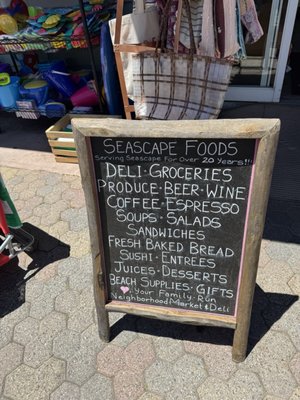 SEASCAPE FOODS
SERVING SEASCAPE FOR OVER 20 YEARS!!
DELI · GROCERIES
PRODUCE · BEER · WINE
COFFEE · ESPRESSO
SOUPS · SALADS
SANDWICHES
FRESH BAKED BREAD
SUSHI · ENTRÉES
JUICES · DESSERTS
BEACH SUPPLIES · GIFTS
YOUR FAMILY-RUN
NEIGHBORHOOD MARKET & DELI